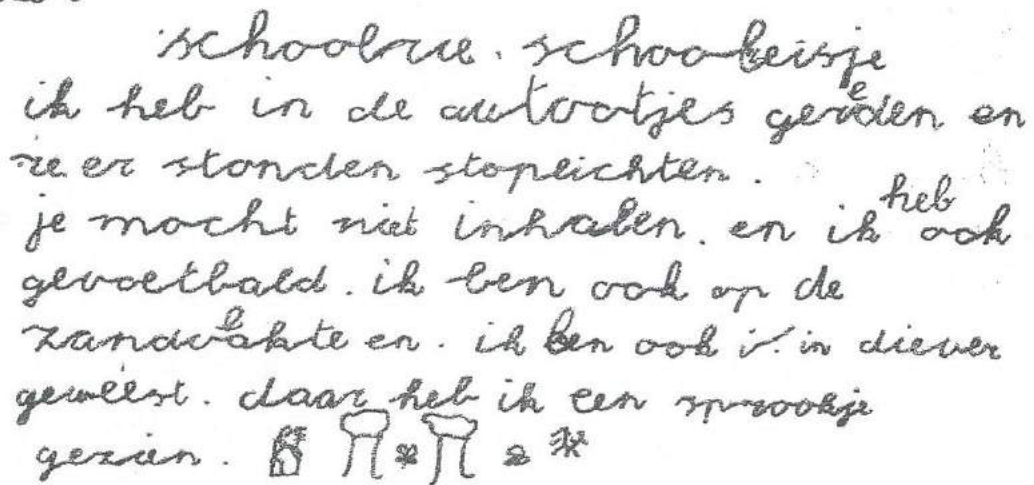 schoolrue. schoolreisje
ik heb in de autootjes gereden en
re er stonden stoplichten.
je mocht niet inhalen. en ik heb ook
gevoetbald. ik ben ook op de
zandvlakte en. ik ben ook i. in diever
geweest. daar heb ik een sprookje
gezien.